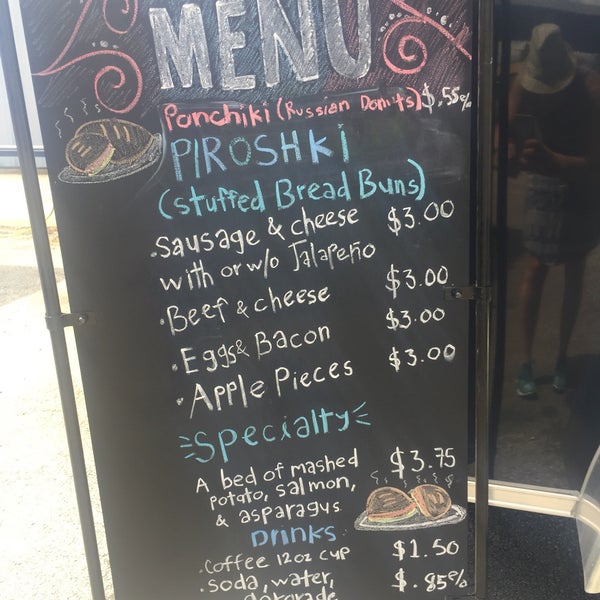 MENU
Ponchiki (Russian Donuts) $.55¢
PIROSHKI
(Stuffed Bread Buns)
• Sausage & cheese $3.00
with or w/o Jalapeño
• Beef & cheese $3.00
• Eggs & Bacon $3.00
• Apple Pieces $3.00
Specialty
A bed of mashed $3.75
potato, salmon,
& asparagus
Drinks
• Coffee 12oz cup $1.50
• soda, water, $.85¢
gatorade